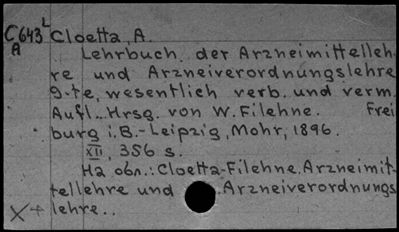 C643L Cloetta, A.
A Lehrbuch der Arzneimittelleh-
re und Arzneiverordnungslehre
9-te, wesentlich verb. und verm.
Aufl.. Hrsg. von W. Filehne. Frei
burg i. B.- Leipzig, Mohr, 1896.
XII, 356 s.
На обл.: Cloetta-Filehne. Arzneimit-
tellehre und Arzneiverordnungs
lehre..